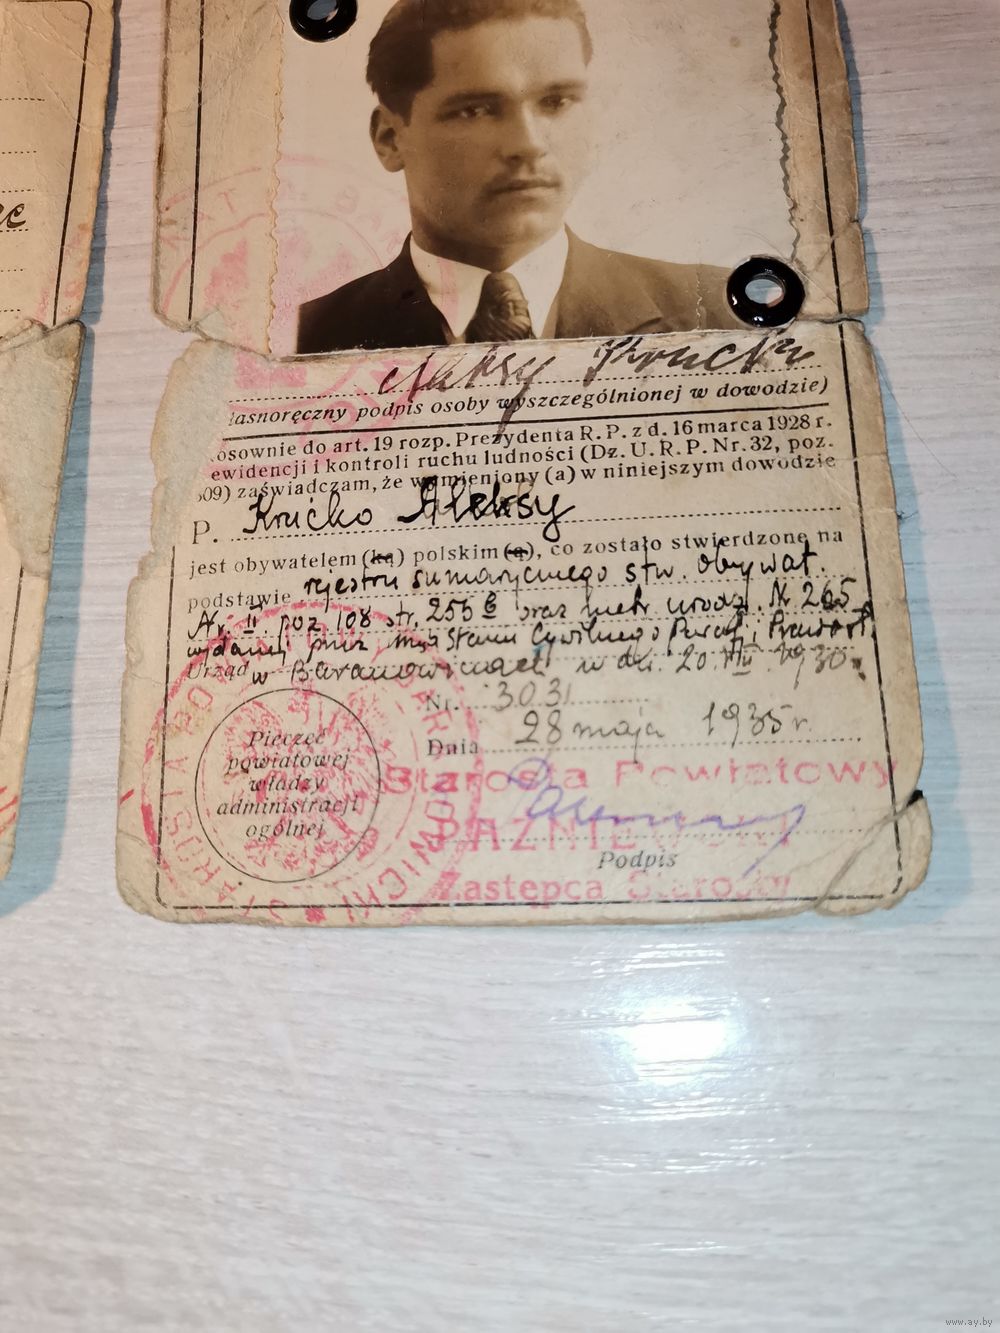 Aleksy Krućko
łasnoręczny podpis osoby wyszczególnionej w dowodzie)
osownie do art. 19 rozp. Prezydenta R. P. z d. 16 marca 1928 r.
ewidencji i kontroli ruchu ludności (Dz. U. R. P. Nr. 32, poz.
309) zaświadczam, że wymieniony (a) w niniejszym dowodzie
P. Krućko Aleksy
jest obywatelem (ką) polskim (ą), co zostało stwierdzone na
podstawie rejestru sumarycznego stw. obywat.
Nr. II poz 108 str. 255 oraz metr. urodz. Nr 265
wydanej przez Stanu Cywilnego Paraf. Prawosł.
Urząd w Baranowiczach w dn. 20 1930.
Nr. 3031
Dnia 28 maja 1935 r.
Pieczęć
powiatowej
władzy
administracji
ogólnej
STAROSTA POWIATOWY BARANOWICKI
Starosta Powiatowy
Podpis
Zastępca Starosty
www.ay.by